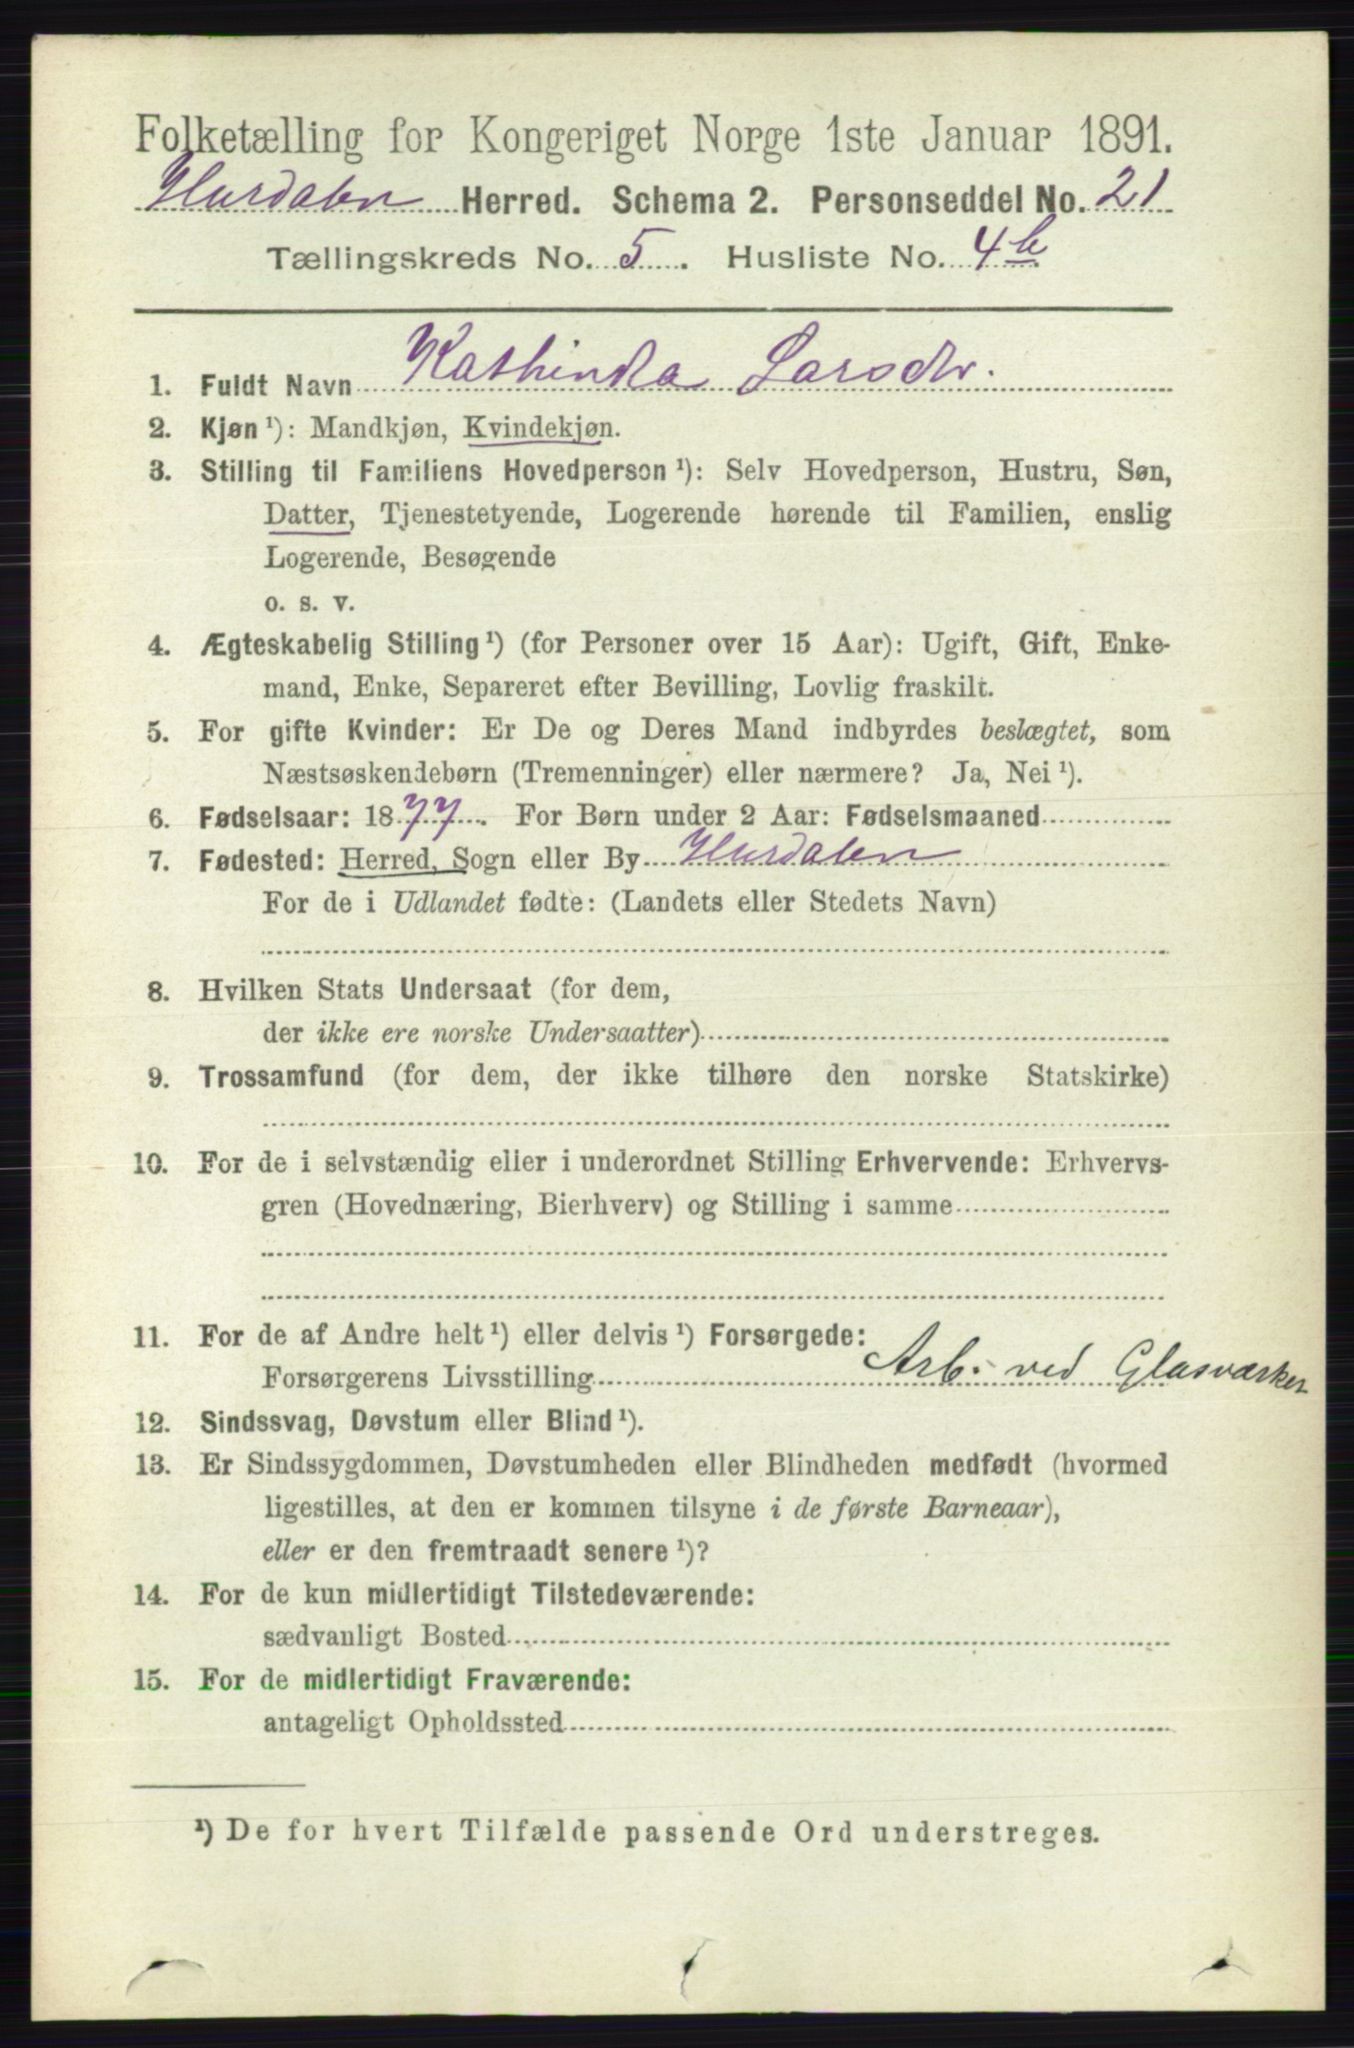 Folketælling for Kongeriget Norge 1ste Januar 1891.
Hurdalen Herred. Schema 2. Personseddel No. 21
Tællingskreds No. 5. Husliste No. 4b
1. Fuldt Navn Kathinka Larsdtr.
2. Kjøn ¹): Mandkjøn, Kvindekjøn.
3. Stilling til Familiens Hovedperson ¹): Selv Hovedperson, Hustru, Søn,
Datter, Tjenestetyende, Logerende hørende til Familien, enslig
Logerende, Besøgende
o. s. v.
4. Ægteskabelig Stilling ¹) (for Personer over 15 Aar): Ugift, Gift, Enke-
mand, Enke, Separeret efter Bevilling, Lovlig fraskilt.
5. For gifte Kvinder: Er De og Deres Mand indbyrdes beslægtet, som
Næstsøskendebørn (Tremenninger) eller nærmere? Ja, Nei ¹).
6. Fødselsaar: 1877. For Børn under 2 Aar: Fødselsmaaned
7. Fødested: Herred, Sogn eller By Hurdalen
For de i Udlandet fødte: (Landets eller Stedets Navn)
8. Hvilken Stats Undersaat (for dem,
der ikke ere norske Undersaatter)
9. Trossamfund (for dem, der ikke tilhøre den norske Statskirke)
10. For de i selvstændig eller i underordnet Stilling Erhvervende: Erhvervs-
gren (Hovednæring, Bierhverv) og Stilling i samme
11. For de af Andre helt ¹) eller delvis ¹) Forsørgede:
Forsørgerens Livsstilling Arb. ved Glasværket
12. Sindssvag, Døvstum eller Blind ¹).
13. Er Sindssygdommen, Døvstumheden eller Blindheden medfødt (hvormed
ligestilles, at den er kommen tilsyne i de første Barneaar),
eller er den fremtraadt senere ¹)?
14. For de kun midlertidigt Tilstedeværende:
sædvanligt Bosted
15. For de midlertidigt Fraværende:
antageligt Opholdssted
¹) De for hvert Tilfælde passende Ord understreges.